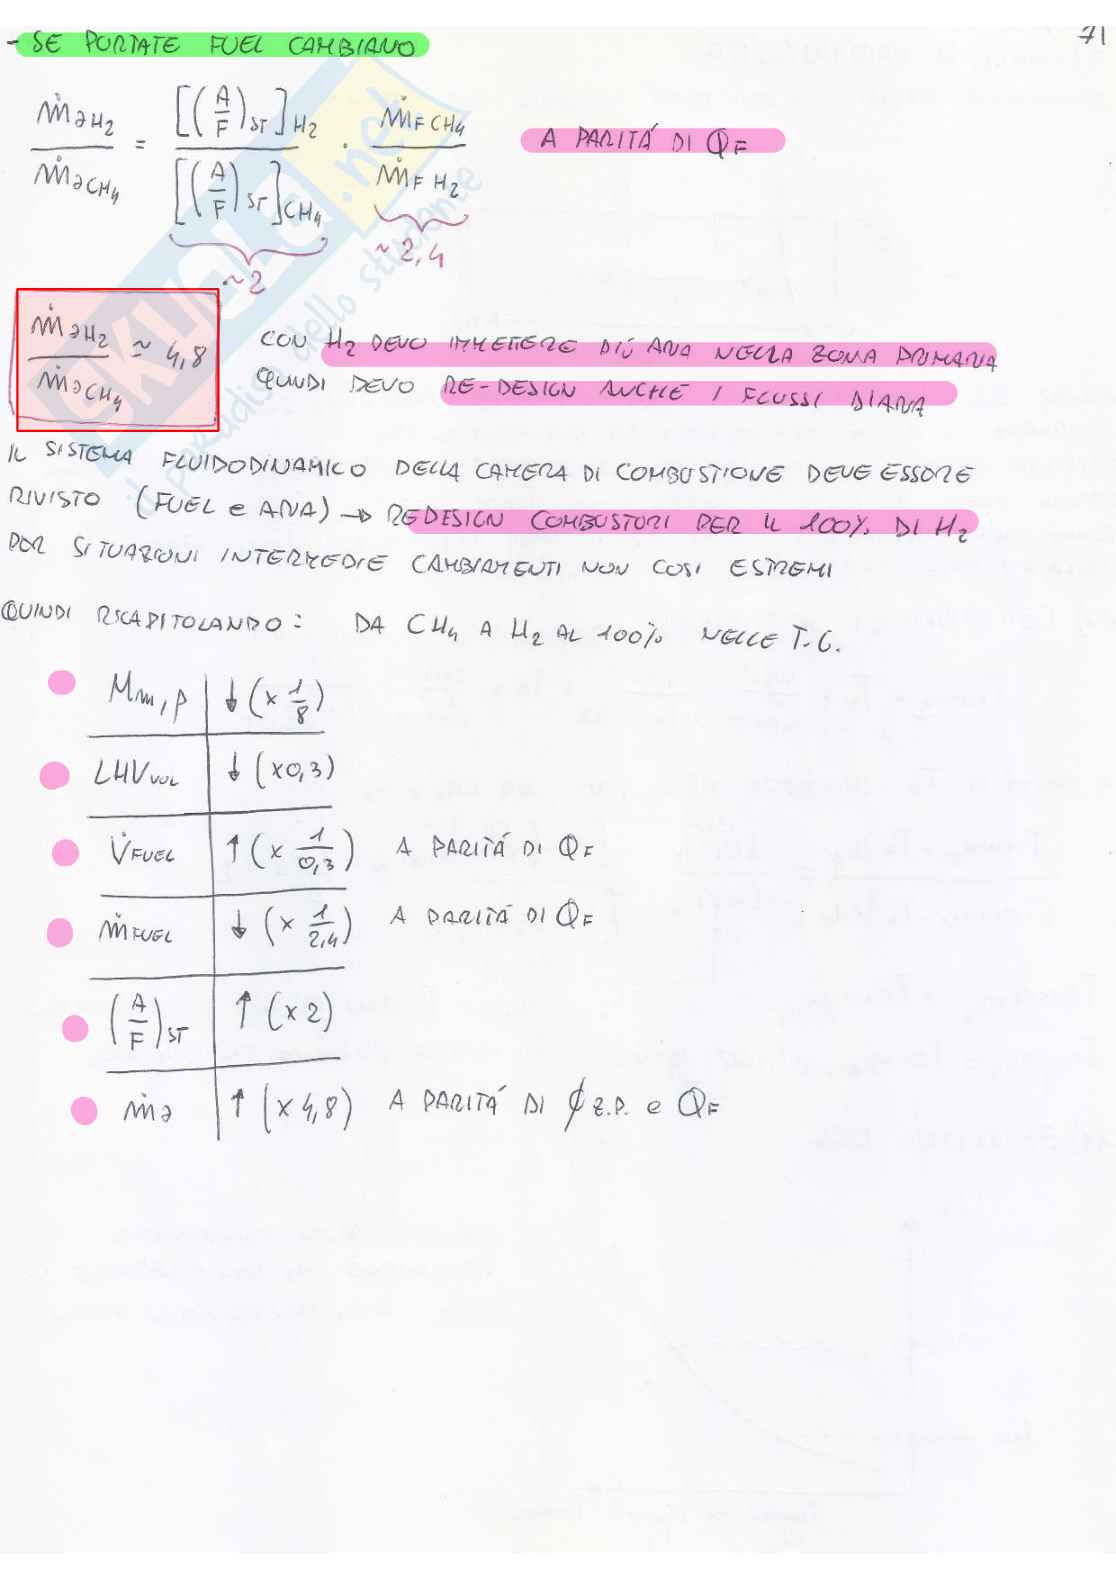 71
- SE PORTATE FUEL CAMBIANO
ṁaH2 / ṁaCH4 = [(A/F)ST]H2 / [(A/F)ST]CH4 · ṁF CH4 / ṁF H2 A PARITÁ DI QF
~2 ~2,4
ṁaH2 / ṁaCH4 ≃ 4,8
CON H2 DEVO IMMETTERE PIÙ ARIA NELLA ZONA PRIMARIA
QUINDI DEVO RE-DESIGN ANCHE I FLUSSI D'ARIA
IL SISTEMA FLUIDODINAMICO DELLA CAMERA DI COMBUSTIONE DEVE ESSERE
RIVISTO (FUEL e ARIA) → REDESIGN COMBUSTORI PER IL 100% DI H2
PER SITUAZIONI INTERMEDIE CAMBIAMENTI NON COSI ESTREMI
QUINDI RICAPITOLANDO: DA CH4 A H2 AL 100% NELLE T.G.
Mm,p ↓ (x 1/8)
LHVVOL ↓ (x0,3)
V̇FUEL ↑ (x 1/0,3) A PARITÁ DI QF
ṁFUEL ↓ (x 1/2,4) A PARITÁ DI QF
(A/F)ST ↑ (x2)
ṁa ↑ (x 4,8) A PARITÁ DI ϕ Z.P. e QF
SKUOLA.net
il paradiso dello studente